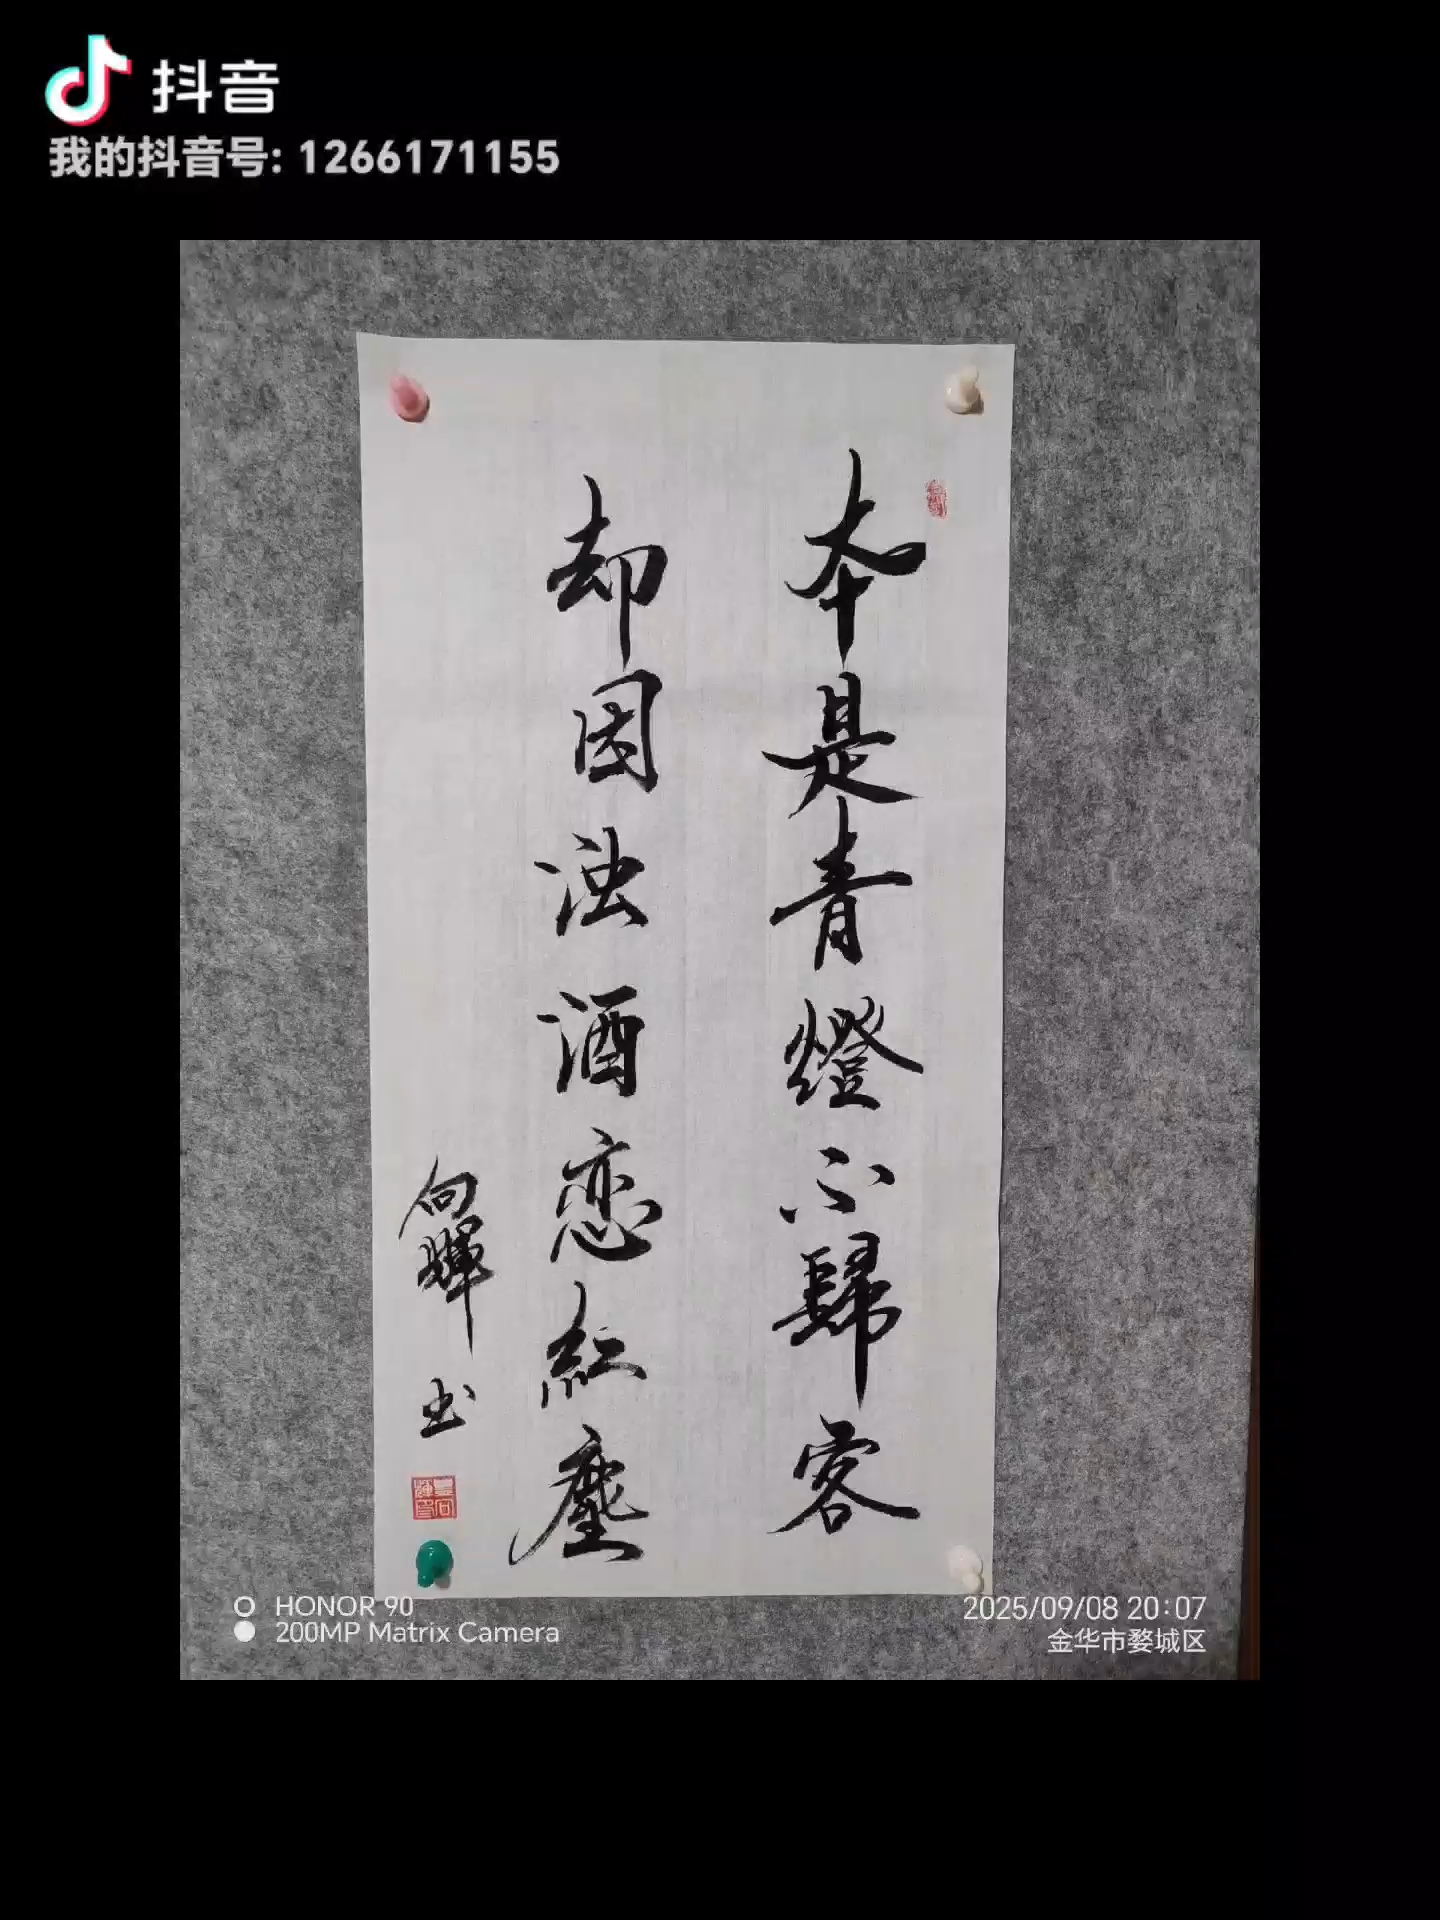 抖音
我的抖音号: 1266171155
本是青燈不歸客
却因浊酒恋红塵
向輝书
HONOR 90
200MP Matrix Camera
2025/09/08 20:07
金华市婺城区